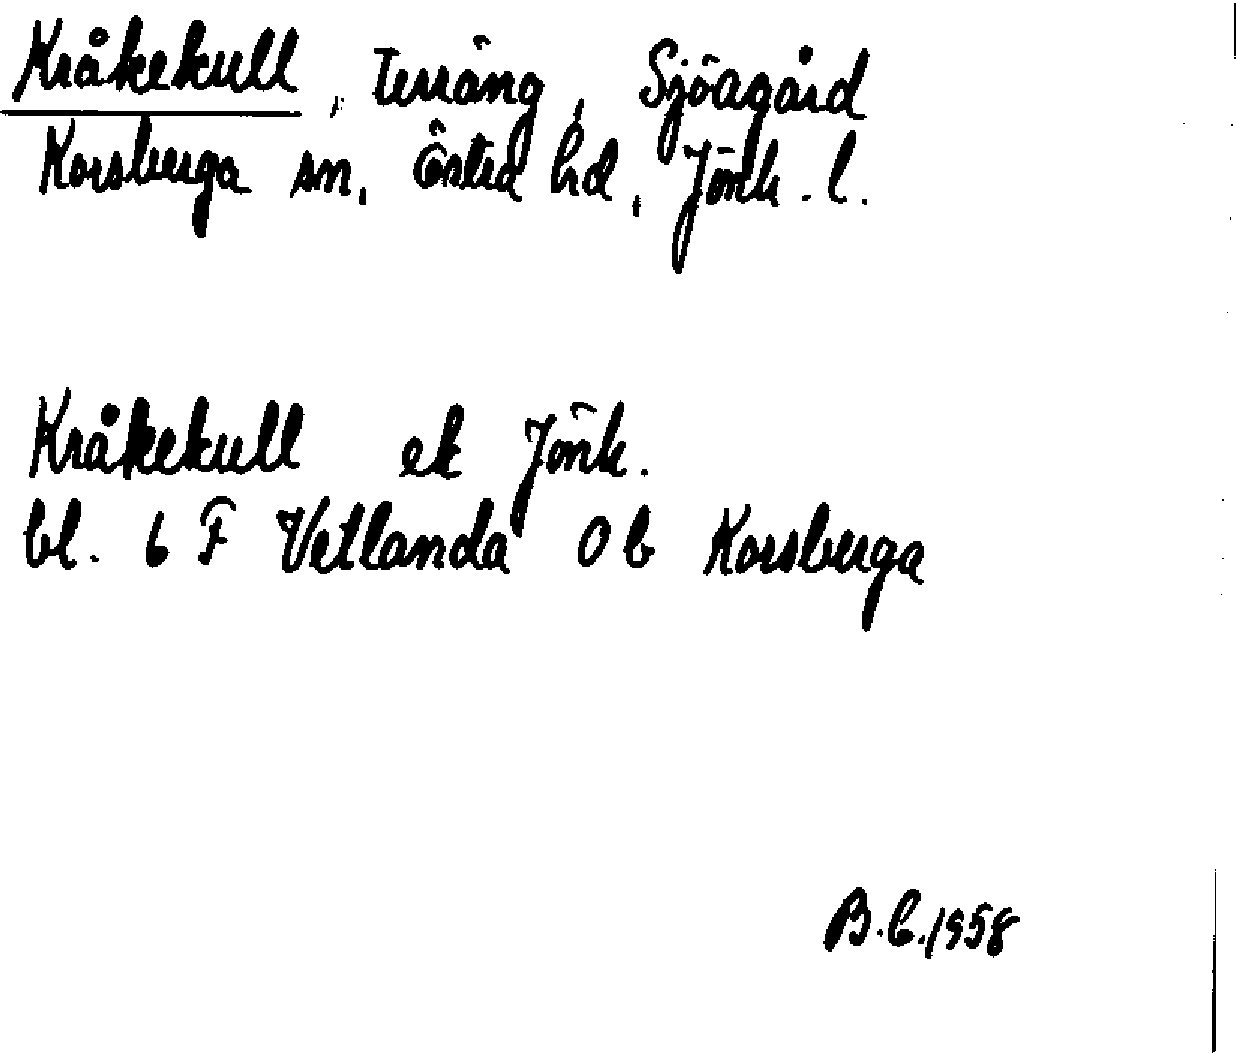 Kråkekull, Terräng, Sjöagård
Korsberga sn, Östra hd, Jönk. l.
Kråkekull ek Jönk.
bl. 6 F Vetlanda 0 b Korsberga
B.C. 1958